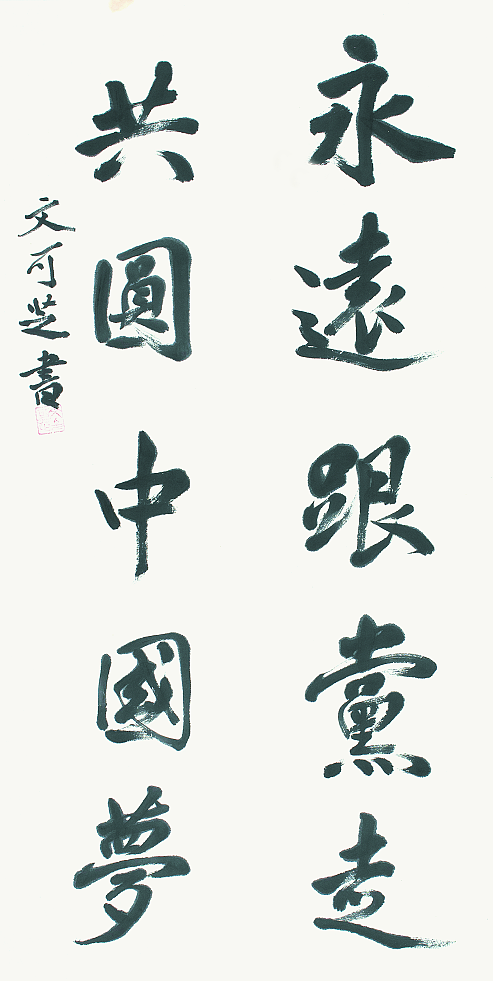 永遠跟黨走
共圓中國夢
文可芝書